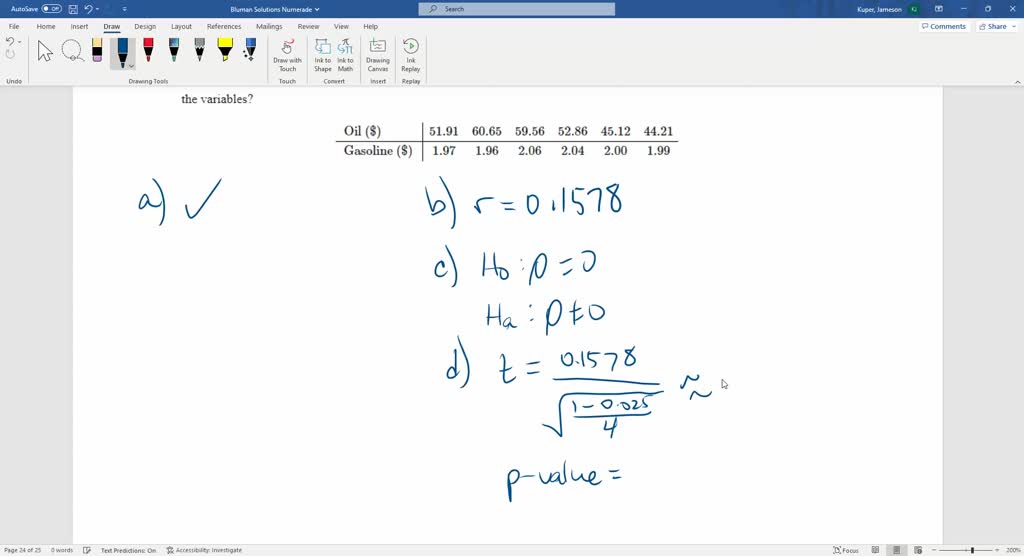 AutoSave Off Bluman Solutions Numerade Search Kuper, Jameson KJ
File Home Insert Draw Design Layout References Mailings Review View Help Comments Share
Draw with Touch Ink to Shape Ink to Math Drawing Canvas Ink Replay
Undo Drawing Tools Touch Convert Insert Replay
the variables?
Oil ($) 51.91 60.65 59.56 52.86 45.12 44.21
Gasoline ($) 1.97 1.96 2.06 2.04 2.00 1.99
a) ✓ b) r = 0.1578
c) H₀ : ρ = 0
Hₐ : ρ ≠ 0
d) t = 0.1578 / √((1 - 0.025) / 4) ≈
p-value =
Page 24 of 25 0 words Text Predictions: On Accessibility: Investigate Focus 200%